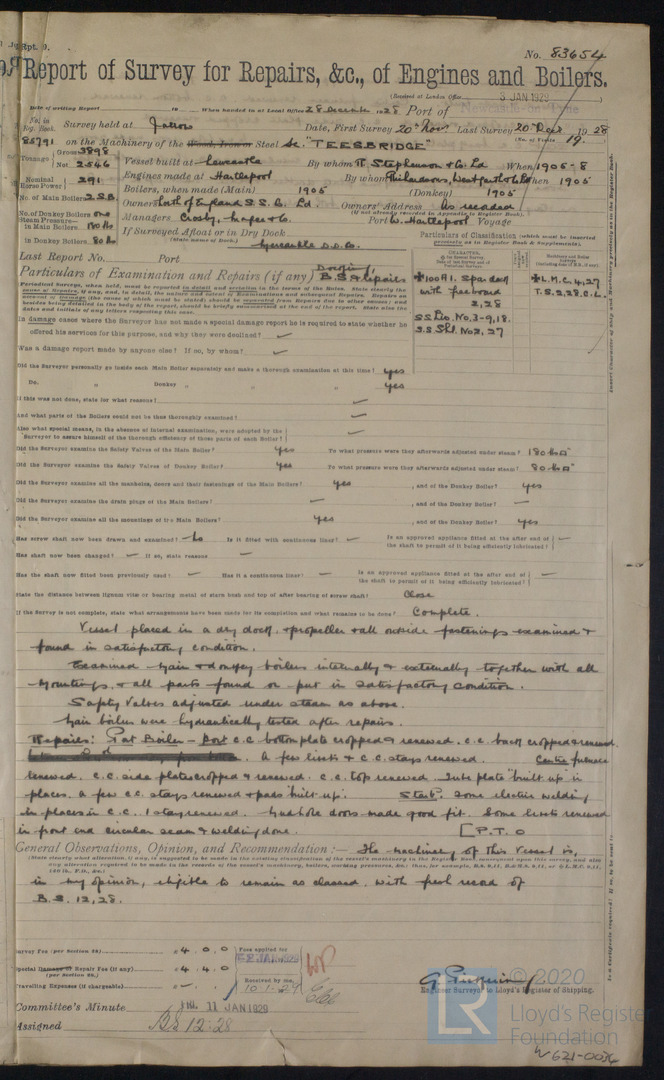 Rpt. 9.
No. 83654
Report of Survey for Repairs, &c., of Engines and Boilers.
(Received at London Office 3 JAN 1929)
Date of writing Report 19 When handed in at Local Office 28 December 1928 Port of
No. in Reg. Book. Survey held at Jarrow Date, First Survey 20 Nov Last Survey 20 Dec 1928
85791 on the Machinery of the Wood, Iron or Steel Sc. "TEESBRIDGE" (No. of Visits 19.)
Tonnage Gross 3898 Net 2546
Vessel built at Newcastle By whom R Stephenson & Co Ld When 1905-8
Nominal Horse Power 291 Engines made at Hartlepool By whom Richardsons, Westgarth & Co Ld When 1905
No. of Main Boilers 2 S.B. Boilers, when made (Main) 1905 (Donkey) 1905
No. of Donkey Boilers one Owners North of England S.S. Co. Ld. Owners' Address As recorded
(If not already recorded in Appendix to Register Book).
Steam Pressure—
in Main Boilers 180 lb Managers Crosby, Magee & Co. Port W. Hartlepool Voyage
in Donkey Boilers 80 lb If Surveyed Afloat or in Dry Dock Mercantile D.D. Co.
(State name of Dock.)
Particulars of Classification (which must be inserted precisely as in Register Book & Supplements).
Last Report No. Port
Particulars of Examination and Repairs (if any) Docking, B.S. & Repairs
✠100A1. Spar deck
with freeboard
2,28
SS No. No. 3-9,18.
✠L.M.C. 4,27
T.S. 2,28. C.L.
In damage cases where the Surveyor has not made a special damage report he is required to state whether he
offered his services for this purpose, and why they were declined? —
Was a damage report made by anyone else? If so, by whom? —
Did the Surveyor personally go inside each Main Boiler separately and make a thorough examination at this time? yes
Do. " Donkey " " " yes
If this was not done, state for what reasons? —
And what parts of the Boilers could not be thus thoroughly examined? —
Also what special means, in the absence of internal examination, were adopted by the
Surveyor to assure himself of the thorough efficiency of those parts of each Boiler? —
Did the Surveyor examine the Safety Valves of the Main Boiler? yes To what pressure were they afterwards adjusted under steam? 180 lbs □"
Did the Surveyor examine the Safety Valves of Donkey Boiler? yes To what pressure were they afterwards adjusted under steam? 80 lbs □"
Did the Surveyor examine all the manholes, doors and their fastenings of the Main Boilers? yes , and of the Donkey Boiler? yes
Did the Surveyor examine the drain plugs of the Main Boilers? — , and of the Donkey Boiler? —
Did the Surveyor examine all the mountings of the Main Boilers? yes , and of the Donkey Boiler? yes
Has screw shaft now been drawn and examined? No Is it fitted with continuous liner? — Is an approved appliance fitted at the after end of the shaft to permit of it being efficiently lubricated? —
Has shaft now been changed? — If so, state reasons —
Has the shaft now fitted been previously used? — Has it a continuous liner? — Is an approved appliance fitted at the after end of the shaft to permit of it being efficiently lubricated? —
State the distance between lignum vitæ or bearing metal of stern bush and top of after bearing of screw shaft? Close
If the Survey is not complete, state what arrangements have been made for its completion and what remains to be done? Complete.
Vessel placed in a dry dock, & propeller & all outside fastenings examined &
found in satisfactory condition.
Examined Main & donkey boilers internally & externally together with all
Mountings & all parts found or put in satisfactory condition.
Safety Valves adjusted under steam as above.
Main boilers were hydraulically tested after repairs.
Repairs: Port Boiler – Port c.c. bottom plate cropped & renewed. c.c. back cropped & renewed
A few rivets & c.c. stays renewed. Centre furnace
renewed. c.c. side plates cropped & renewed. c.c. top renewed. Tube plate "built up" in
places. A few c.c. stays renewed & pads "built up". Starb. Some electric welding
in places in c.c. 1 stay renewed. Manhole doors made good fit. Some rivets renewed
in front end circular seam & welding done. [P.T.O
General Observations, Opinion, and Recommendation:— The machinery of this vessel is,
in my opinion, eligible to remain as classed with fresh record of
B.S. 12,28.
Survey Fee (per Section 28) £ 4.0.0 Fees applied for
Special Damage or Repair Fee (if any) £ 4.4.0 2 JAN 1929
(per Section 28.)
Travelling Expenses (if chargeable) £ — Received by me, 10.1.29
Engineer Surveyor to Lloyd's Register of Shipping.
Committee's Minute 11 JAN 1929
Assigned BS 12.28
© 2020
Lloyd's Register
Foundation
W621-0036